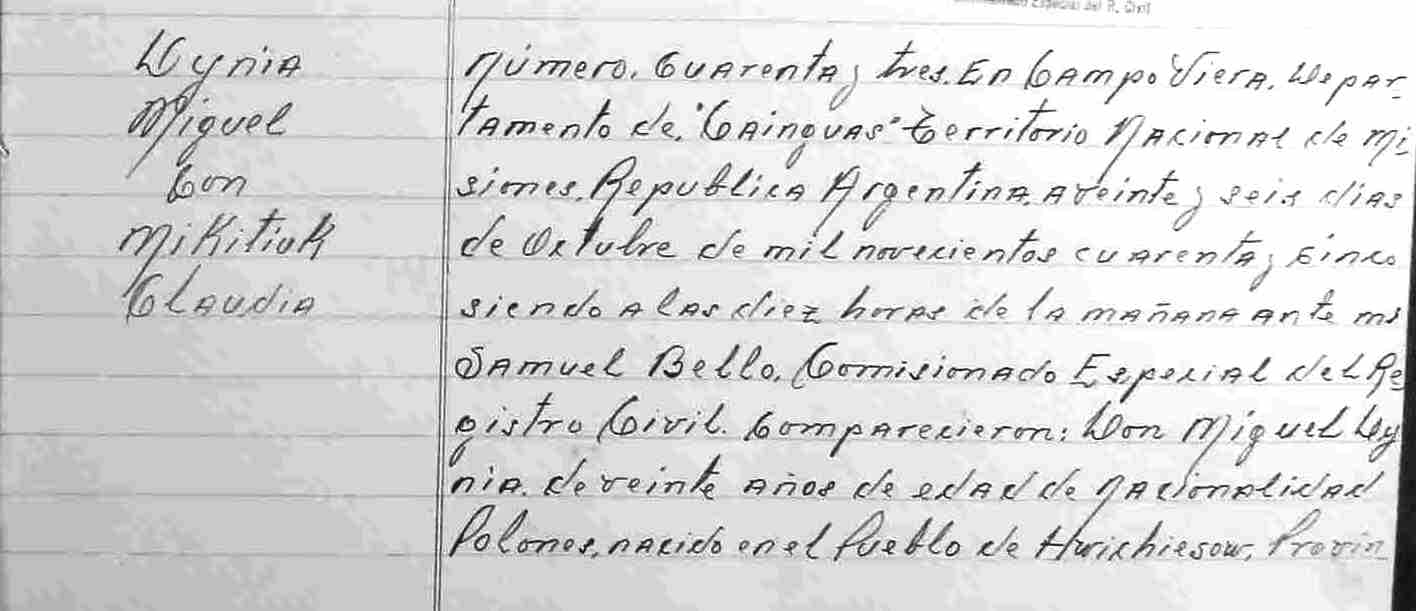 Especial del R. Civil
Dynia
Miguel
Con
Mikitiuk
Claudia
Número. Cuarenta y tres. En Campo Viera. Depar-
tamento de. "Cainguas" Territorio Nacional de Mi
siones. Republica Argentina. a veinte y seis dias
de Octubre de mil novecientos cuarenta y Cinco
siendo a las diez horas de la mañana ante mi
Samuel Bello. Comisionado Especial del Re
gistro Civil. Comparecieron: Don Miguel Dy
nia. de veinte años de edad de Nacionalidad
Polones. nacido en el Pueblo de Provin